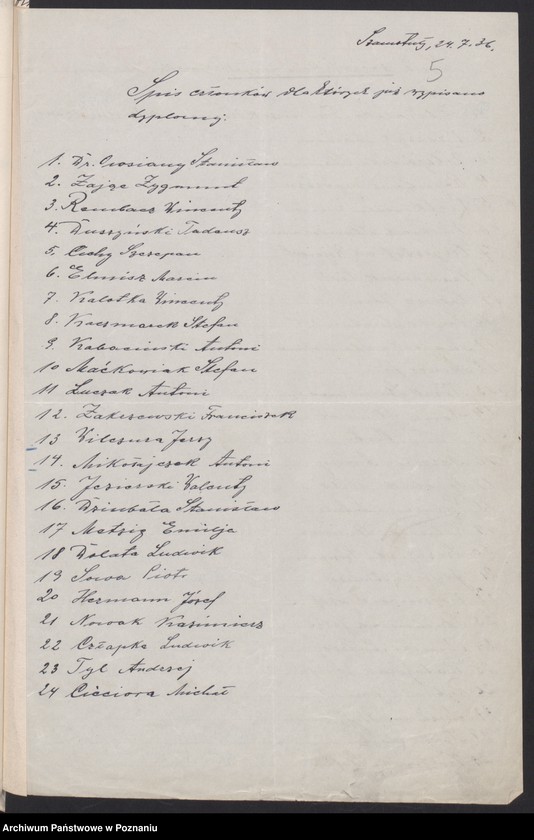 Szamotuły, 24.7.36.
5
Spis członków dla których już wypisano
dyplomy:
1. Dr. Stanisław
2. Zając Zygmunt
3. Rembacz Wincenty
4. Duszyński Tadeusz
5. Cichy Szczepan
6. Marcin
7. Kalotka Wincenty
8. Kaczmarek Stefan
9. Kabaciński Antoni
10 Maćkowiak Stefan
11 Luczak Antoni
12. Zakrzewski Franciszek
13 Wilczura Jerzy
14. Mikołajczak Antoni
15. Jezierski Walenty
16. Dziubała Stanisław
17 Metzig Emilja
18 Dolata Ludwik
19 Sowa Piotr
20 Hermann Józef
21 Nowak Kazimierz
22 Człapka Ludwik
23 Tyl Andrzej
24 Ciciora Michał
Archiwum Państwowe w Poznaniu